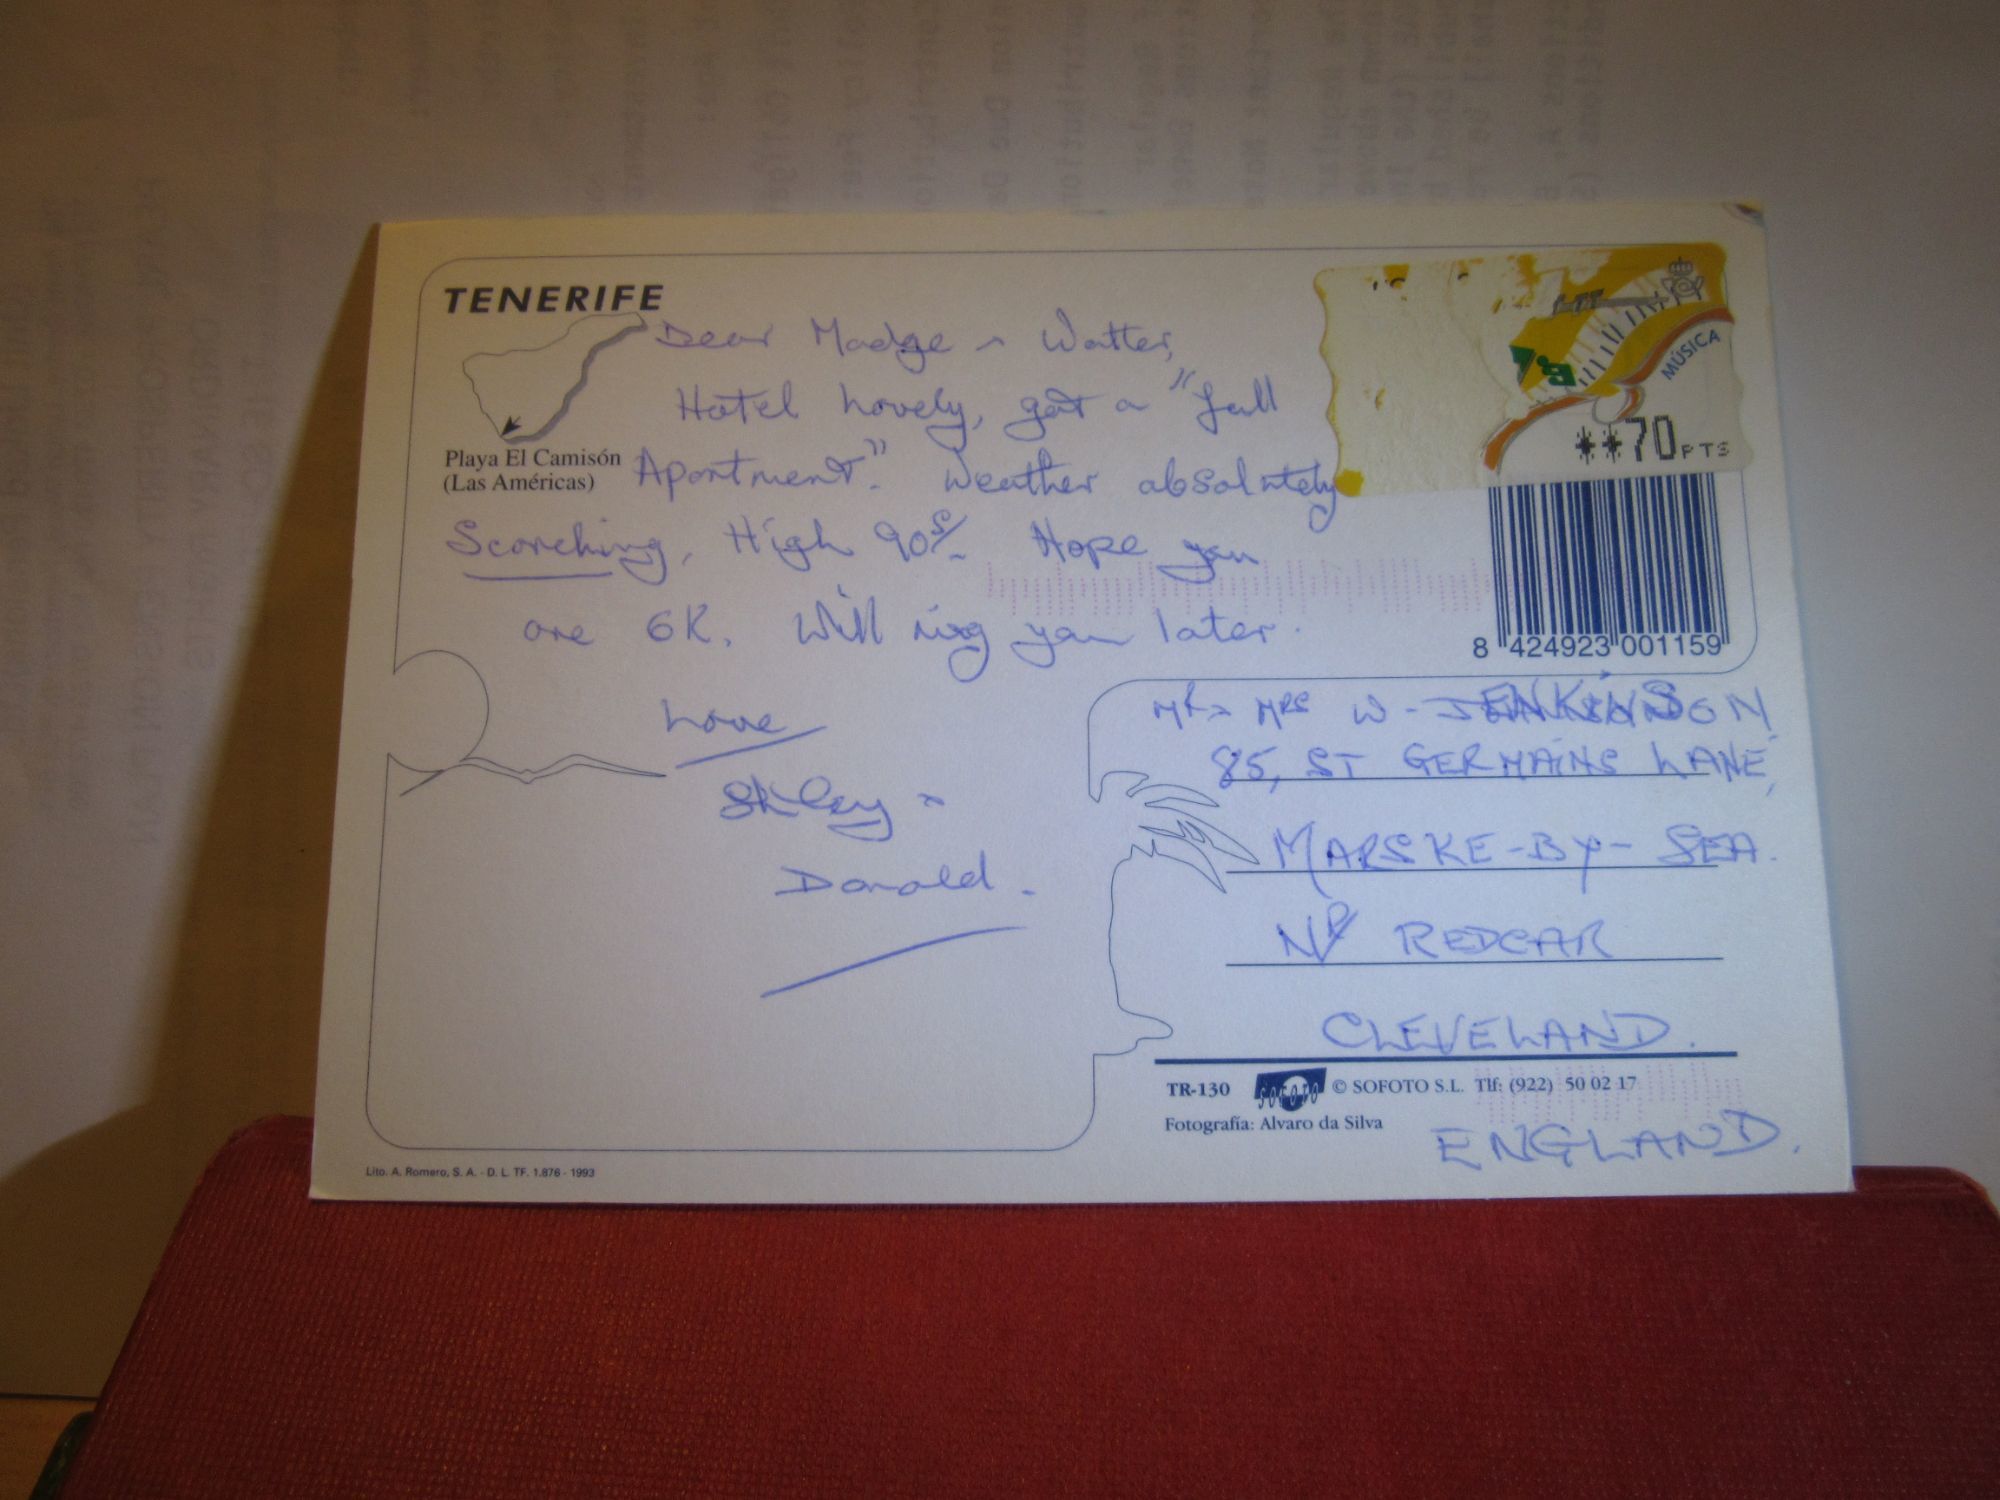 TENERIFE
Playa El Camisón
(Las Américas)
Dear Madge & Walter,
Hotel Lovely, got a "full
Apartment". Weather absolutely
Scorching, High 90s. Hope you
are OK. Will ring you later.
Love
Shirley &
Donald.
MÚSICA
**70PTS
8 424923 001159
Mr & Mrs W.
85, ST GERMAINS LANE,
MARSKE-BY-SEA.
NR REDCAR
CLEVELAND.
ENGLAND.
TR-130 SOFOTO © SOFOTO S.L. Tlf: (922) 50 02 17
Fotografía: Alvaro da Silva
Lito. A. Romero, S. A. - D. L. TF. 1.876 - 1993